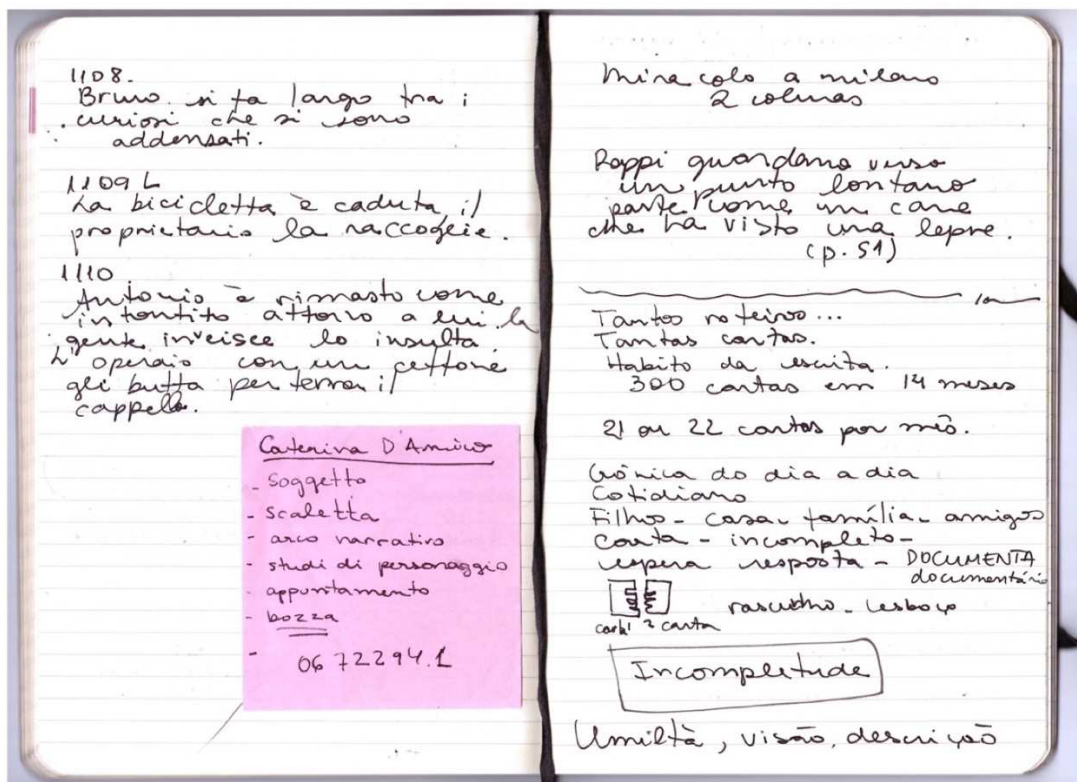 1108.
Bruno si fa largo tra i
curiosi che si sono
addensati.
1109 L
La bicicletta è caduta il
proprietario la raccoglie.
1110
Antonio è rimasto come
intontito attorno a lui la
gente inveisce lo insulta.
L'operaio con un ceffone
gli butta per terra il
cappello.
Caterina D'Amico
- Soggetto
- scaletta
- arco narrativo
- studi di personaggio
- appuntamento
- bozza
- 06 72294.1
Miracolo a milano
2 colunas
Rappi guardano verso
un punto lontano
parte come un cane
che ha visto una lepre.
(p. 51)
Tantos roteiros...
Tantas cartas.
Habito da escrita.
300 cartas em 14 meses
21 ou 22 cartas por mês.
Crônica do dia a dia
Cotidiano
Filhos - casa - família - amigos
carta - incompleto -
espera resposta - DOCUMENTA
documentário
rascunho - esboço
carta 1 2 carta
Incompletude
Umiltà, visão, descrição